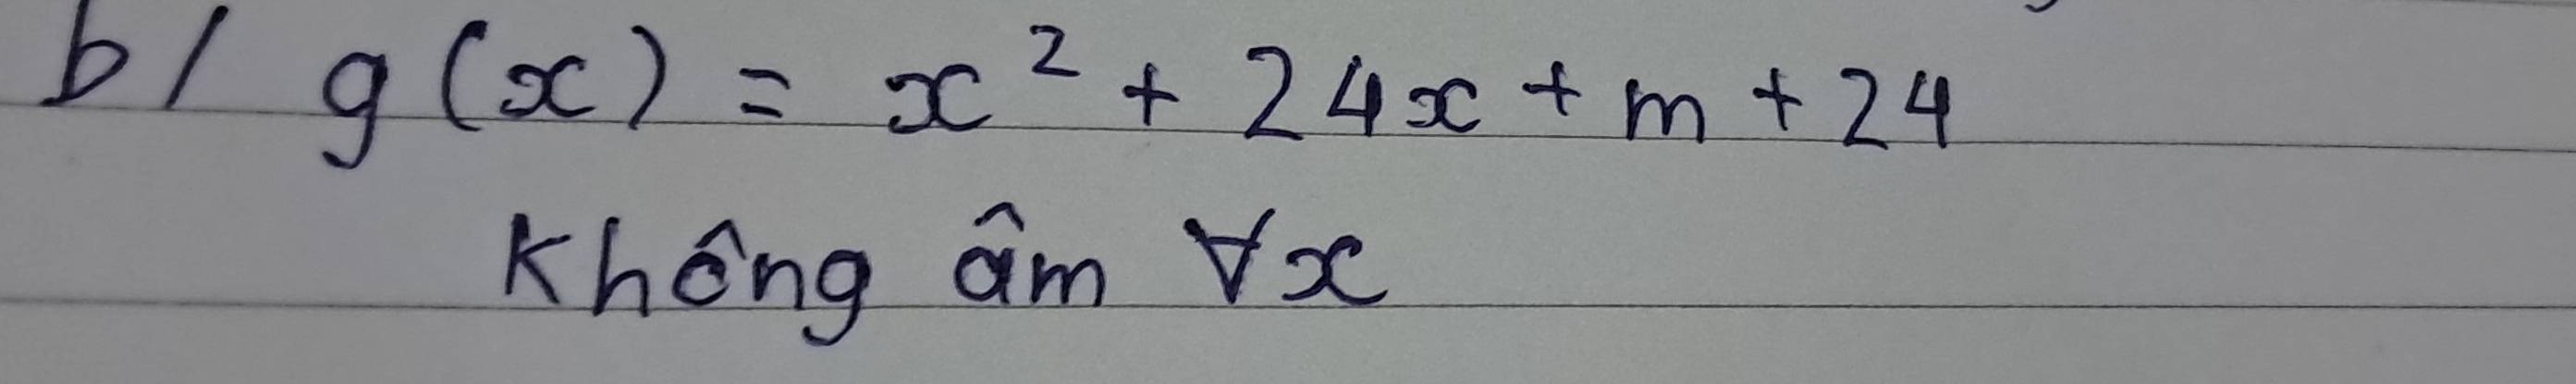 b/ g(x) = x² + 24x + m + 24
Không âm ∀x